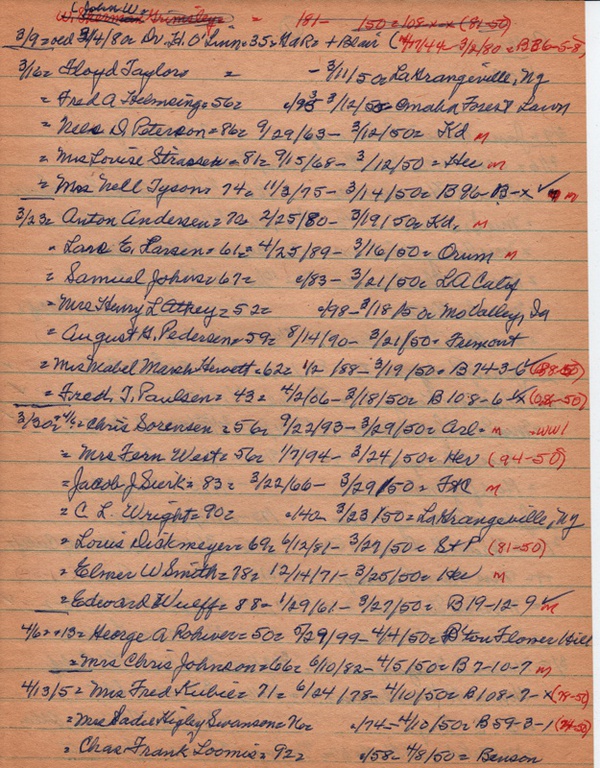 (John W.
W. Sherman Grimsley = = 181- 150=108-x-x (81-50)
3/9=oed 3/4/80= Dr. H. O'Linn=35= + Blair (4/17/44-3/2/80=BB6-5-8)
3/16= Floyd Taylor = = -3/11/50= LaGrangeville, Ny
= Fred A Helmsing=56= c/93 3/12/50=Omaha Forest Lawn
= Nels D. Peterson=86= 9/29/63-3/12/50= Kd m
= Mrs Louise Strassen=81= 9/15/68-3/12/50= Her m
= Mrs Nell Tyson= 74= 11/3/75-3/14/50= B96-B-x✓ m
3/23= Anton Andersen=70= 2/25/80-3/19/50=Kd. m
= Lars E. Larsen=61= 4/25/89-3/16/50= Orum m
= Samuel Johns=67= c/83-3/21/50= LA Calif
= Mrs Henry L Athey=52= c/98-3/18/50= Mo Valley, Ia
= August H. Pedersen=59= 8/14/90-3/21/50= Fremont
= Mrs Mabel Marsh Hewett=62= 1/2/88-3/19/50=B74-3-6✓(88-50)
= Fred, T. Paulsen= 43= 4/2/06-3/18/50= B108-6-x (06-50)
3/30= 4/6=Chris Sorensen=56= 9/22/93-3/29/50= Arl= m =WW1
= Mrs Fern West=56= 1/7/94-3/24/50= Her (94-50)
=Jacob J Sierk=83= 3/22/66-3/29/50= m
= C L. Wright=90= c/40- 3/23/50=LaGrangeville, Ny
= Louis Dickmeyer=69= 6/12/81-3/27/50= St P (81-50)
= Elmer W Smith=78= 12/14/71-3/25/50= Her m
=Edward Wulff=88=1/29/61-3/27/50= B19-12-9✓m
4/6=+13= George A Rohwer=50= 5/29/99-4/4/50= B'ton Flower Hill
= Mrs Chris Johnson=66= 6/10/82-4/5/50= B7-10-7 m
4/13/5= Mrs Fred Kubie= 71= 6/24/78-4/10/50=B108-7-x(78-50)
= Mrs Sadie Higley Swanson=76= c/74-4/10/50=B59-3-1(74-50)
= Chas Frank Loomis= 92= c/58-4/8/50= Benson